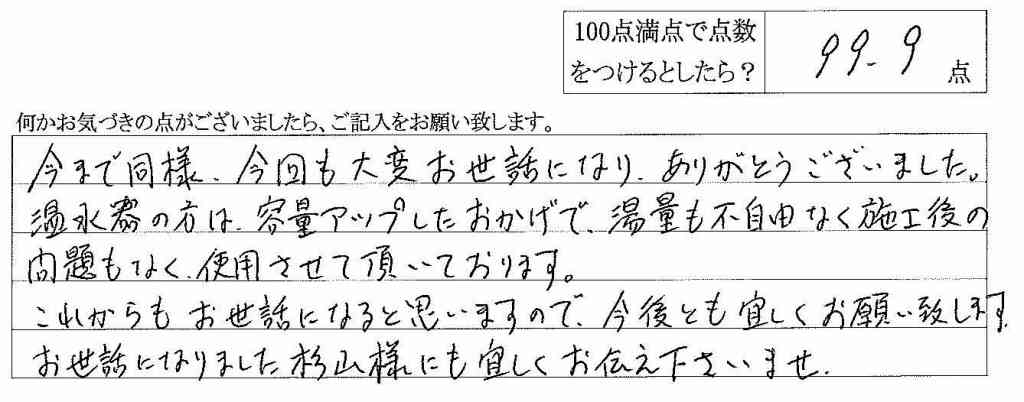 100点満点で点数
をつけるとしたら？
99.9点
何かお気づきの点がございましたら、ご記入をお願い致します。
今まで同様、今回も大変お世話になり、ありがとうございました。
温水器の方は、容量アップしたおかげで、湯量も不自由なく施工後の
問題もなく、使用させて頂いております。
これからもお世話になると思いますので、今後とも宜しくお願い致します。
お世話になりました杉山様にも宜しくお伝え下さいませ.